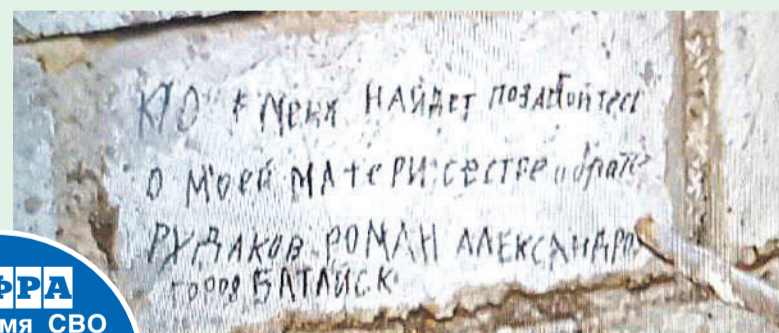 КТО меня НАЙДЕТ ПОЗАБОТЬТЕСЬ
О МОЕЙ МАТЕРИ, СЕСТРЕ и брате
РУДАКОВ РОМАН АЛЕКСАНДРО
город БАТАЙСК
ФРА
МЯ СВО